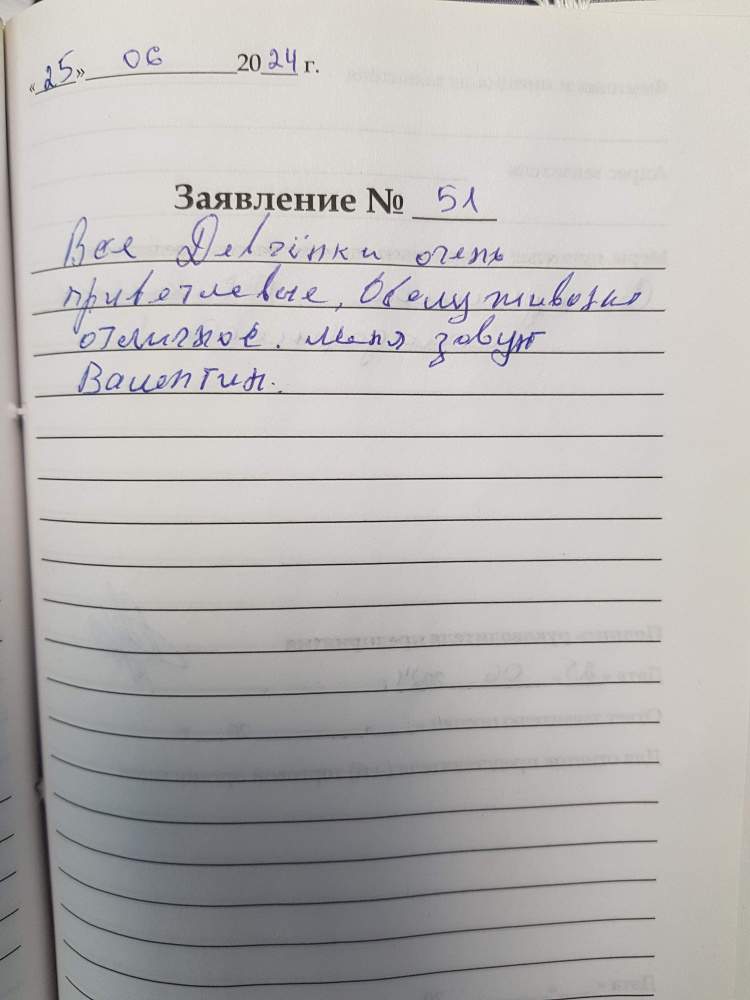 «25» 06 2024 г.
Заявление № 51
Все Девчінки очень
приветлевые, Обслуживание
отличное. меня зовут
Валентин.